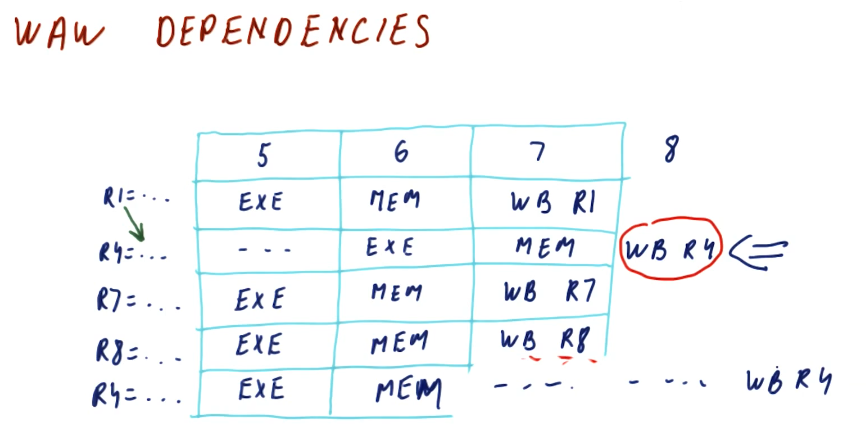 WAW DEPENDENCIES
5 6 7 8
R1=... EXE MEM WB R1
R4=... --- EXE MEM WB R4
R7=... EXE MEM WB R7
R8=... EXE MEM WB R8
R4=... EXE MEM ---- ---- WB R4